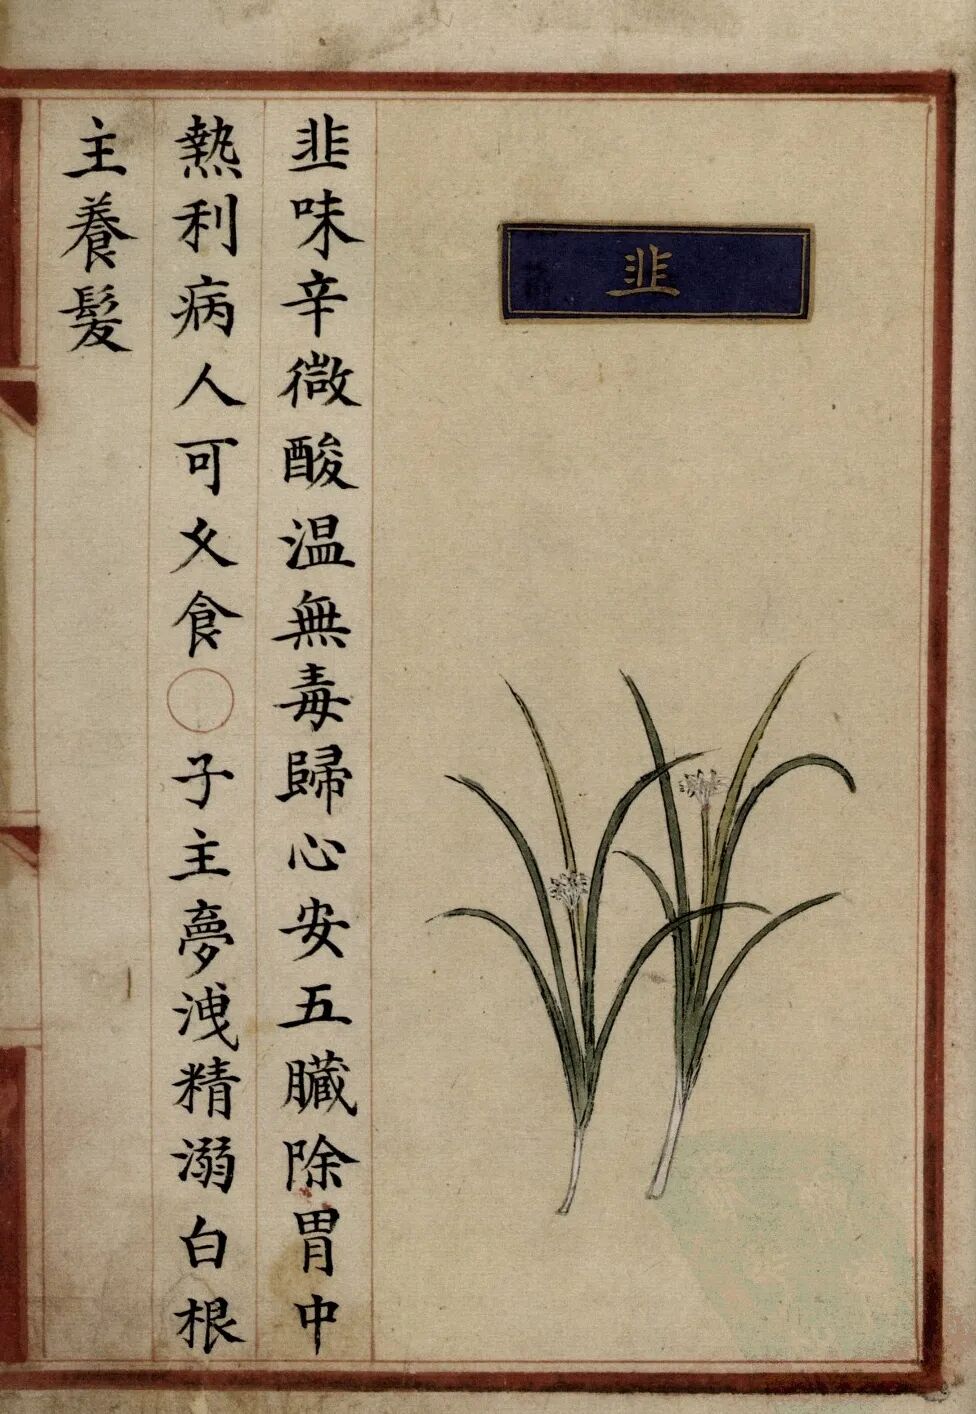 韭
韭味辛微酸温無毒歸心安五臟除胃中
熱利病人可久食○子主夢洩精溺白根
主養髮